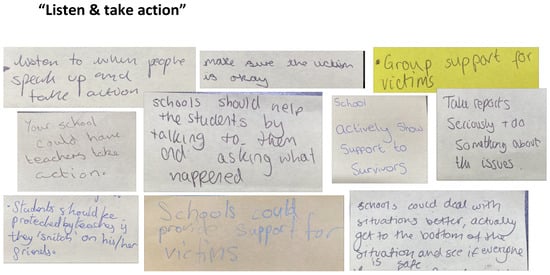 “Listen & take action”
• Listen to when people
speak up and
take action
make sure the victim
is okay
• Group support for
victims
Your school
could have
teachers take
action.
schools should help
the students by
talking to them
and asking what
happened
School
actively show
support to
survivors
Take reports
seriously + do
something about
the issues.
• Students should
protected by teachers if
they 'snitch' on his/her
friends.
Schools could
provide support for
victims
schools could deal with
situations better, actually
get to the bottom of the
situation and see if everyone
is safe